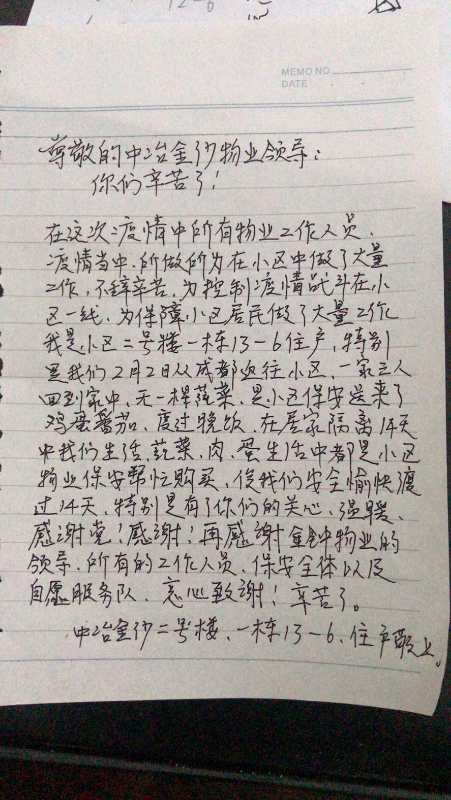 12-6
MEMO NO.
DATE
尊敬的中冶金沙物业领导：
你们辛苦了！
在这次疫情中所有物业工作人员、
疫情当中.所做所为在小区中做了大量
工作,不辞辛苦,为控制疫情战斗在小
区一线,为保障小区居民做了大量工作
我是小区二号楼一栋13-6住户,特别
是我们2月2日从成都返往小区,一家三人
回到家中,无一棵蔬菜,是小区保安送来了
鸡蛋蕃茄,度过晚饭,在居家隔离14天
中我们生活,蔬菜、肉、蛋生活中都是小区
物业保安帮忙购买,使我们安全愉快渡
过14天,特别是有了你们的关心、温暖、
感谢党！感谢！再感谢金钟物业的
领导、所有的工作人员、保安全体以及
自愿服务队、衷心致谢！辛苦了。
中冶金沙二号楼、一栋13-6、住户敬上。